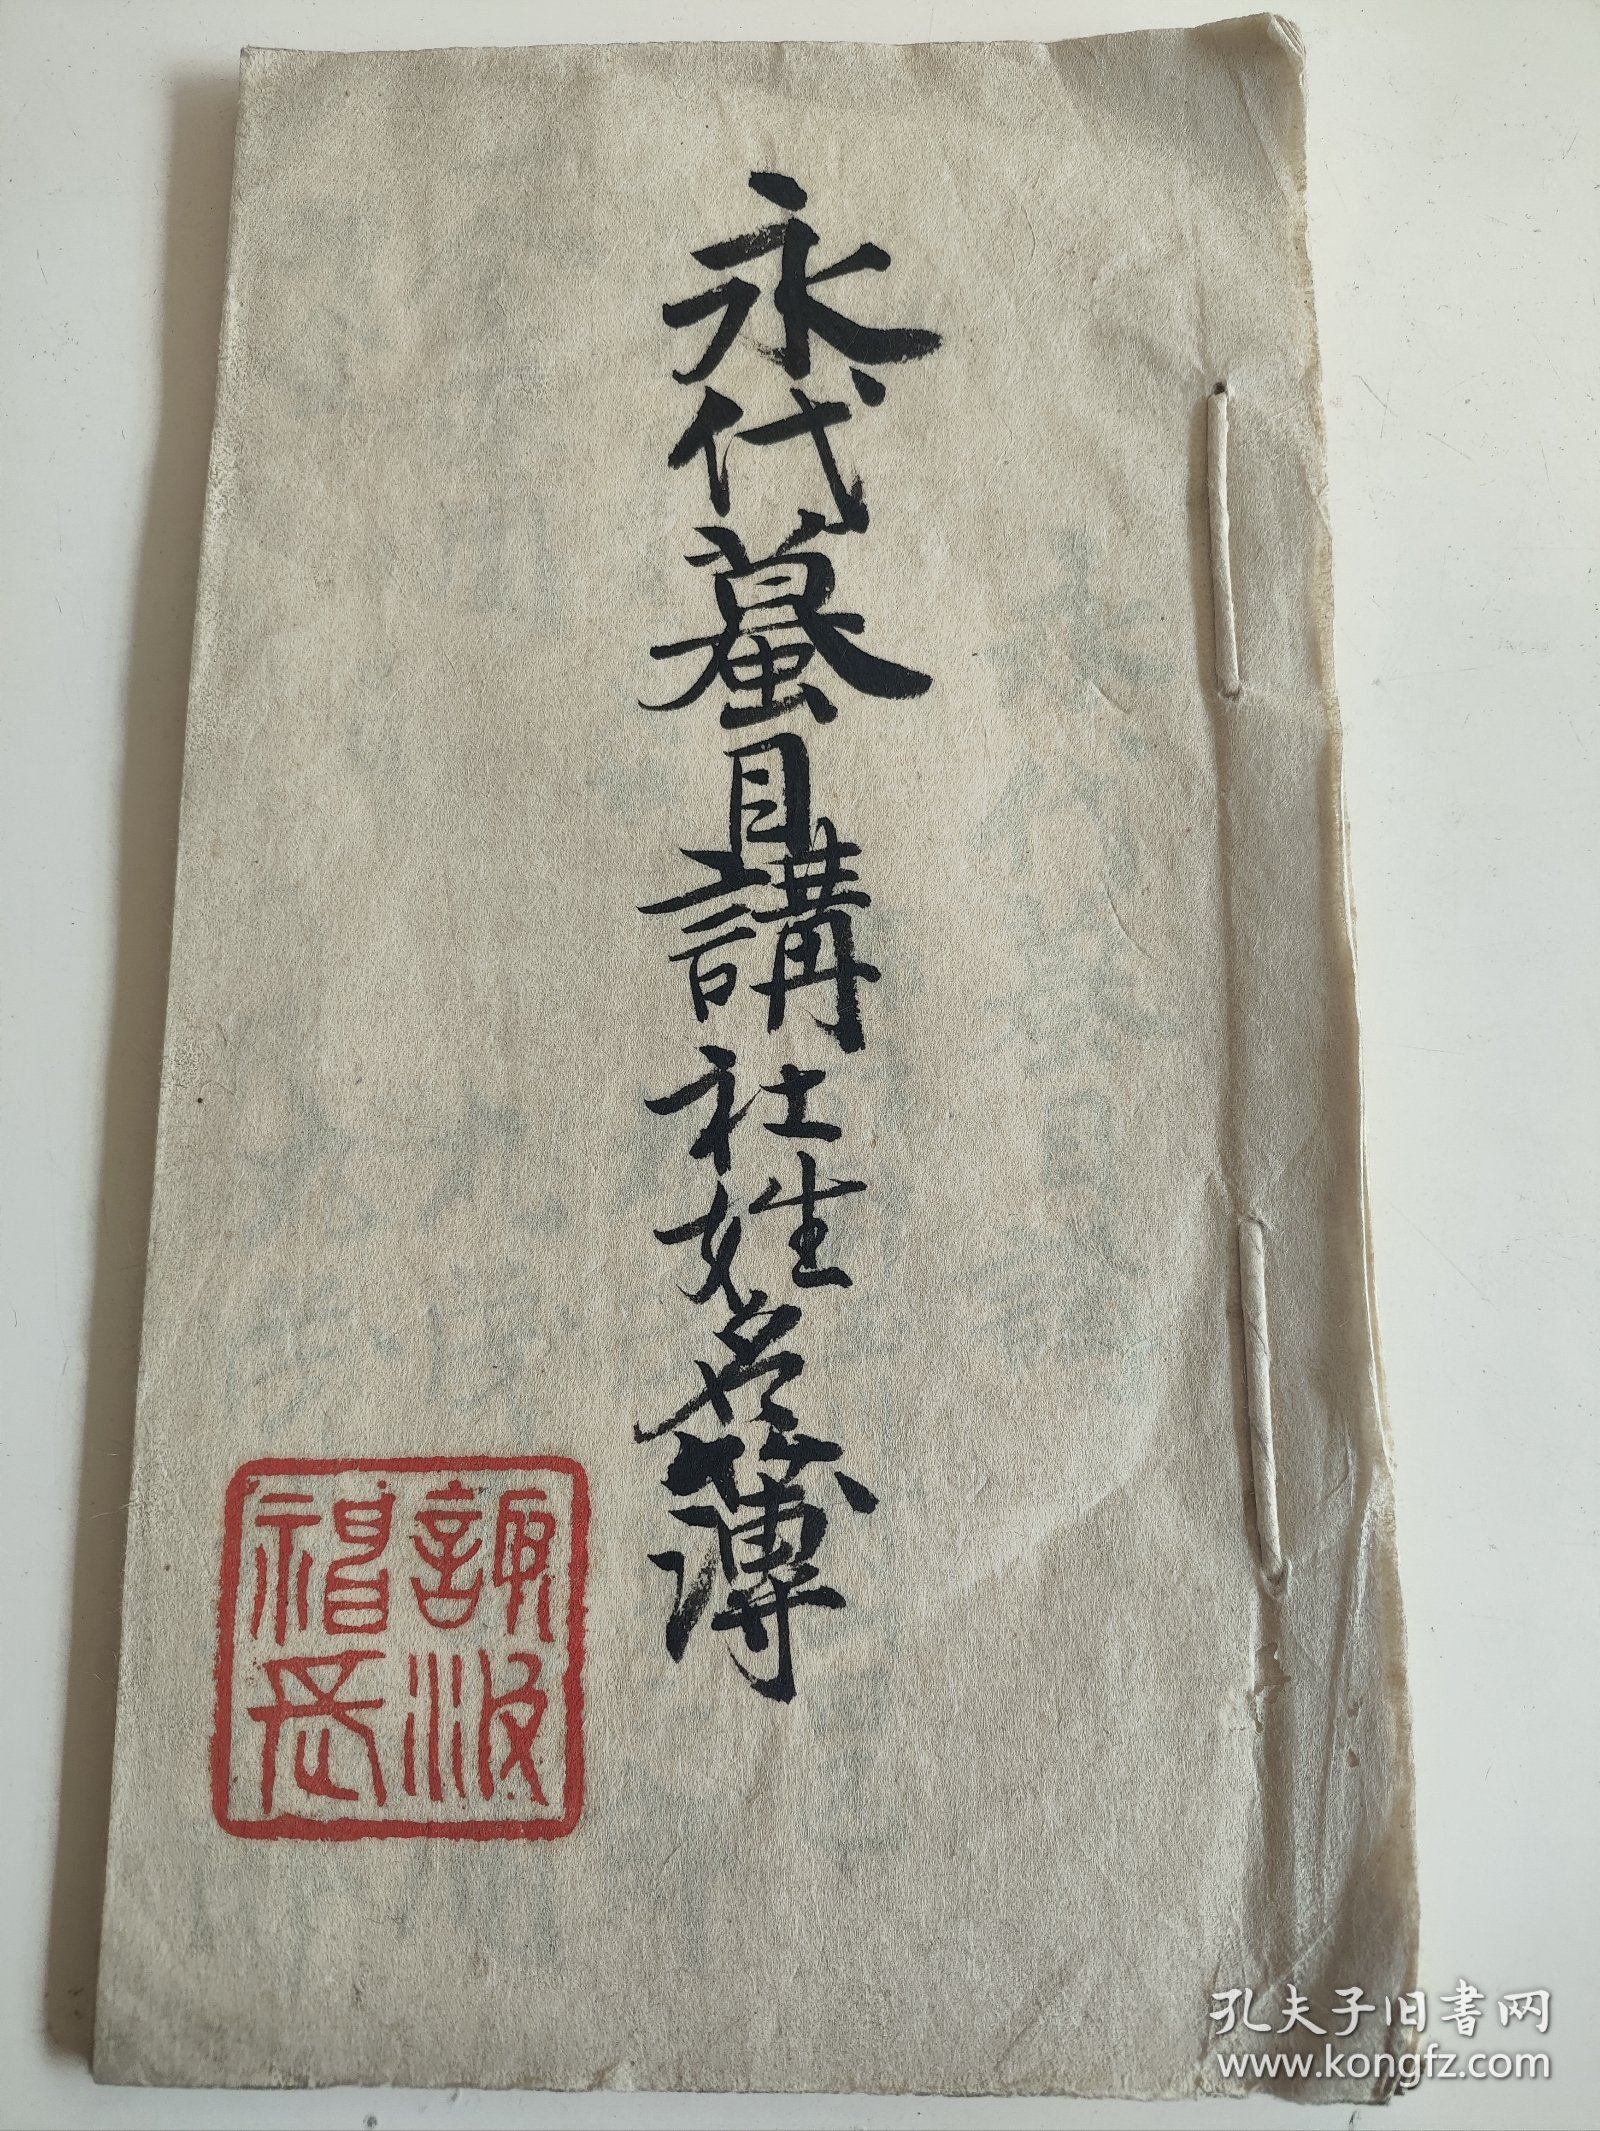 永代蟇目講社姓名簿
諏波
神長
孔夫子旧书网
www.kongfz.com